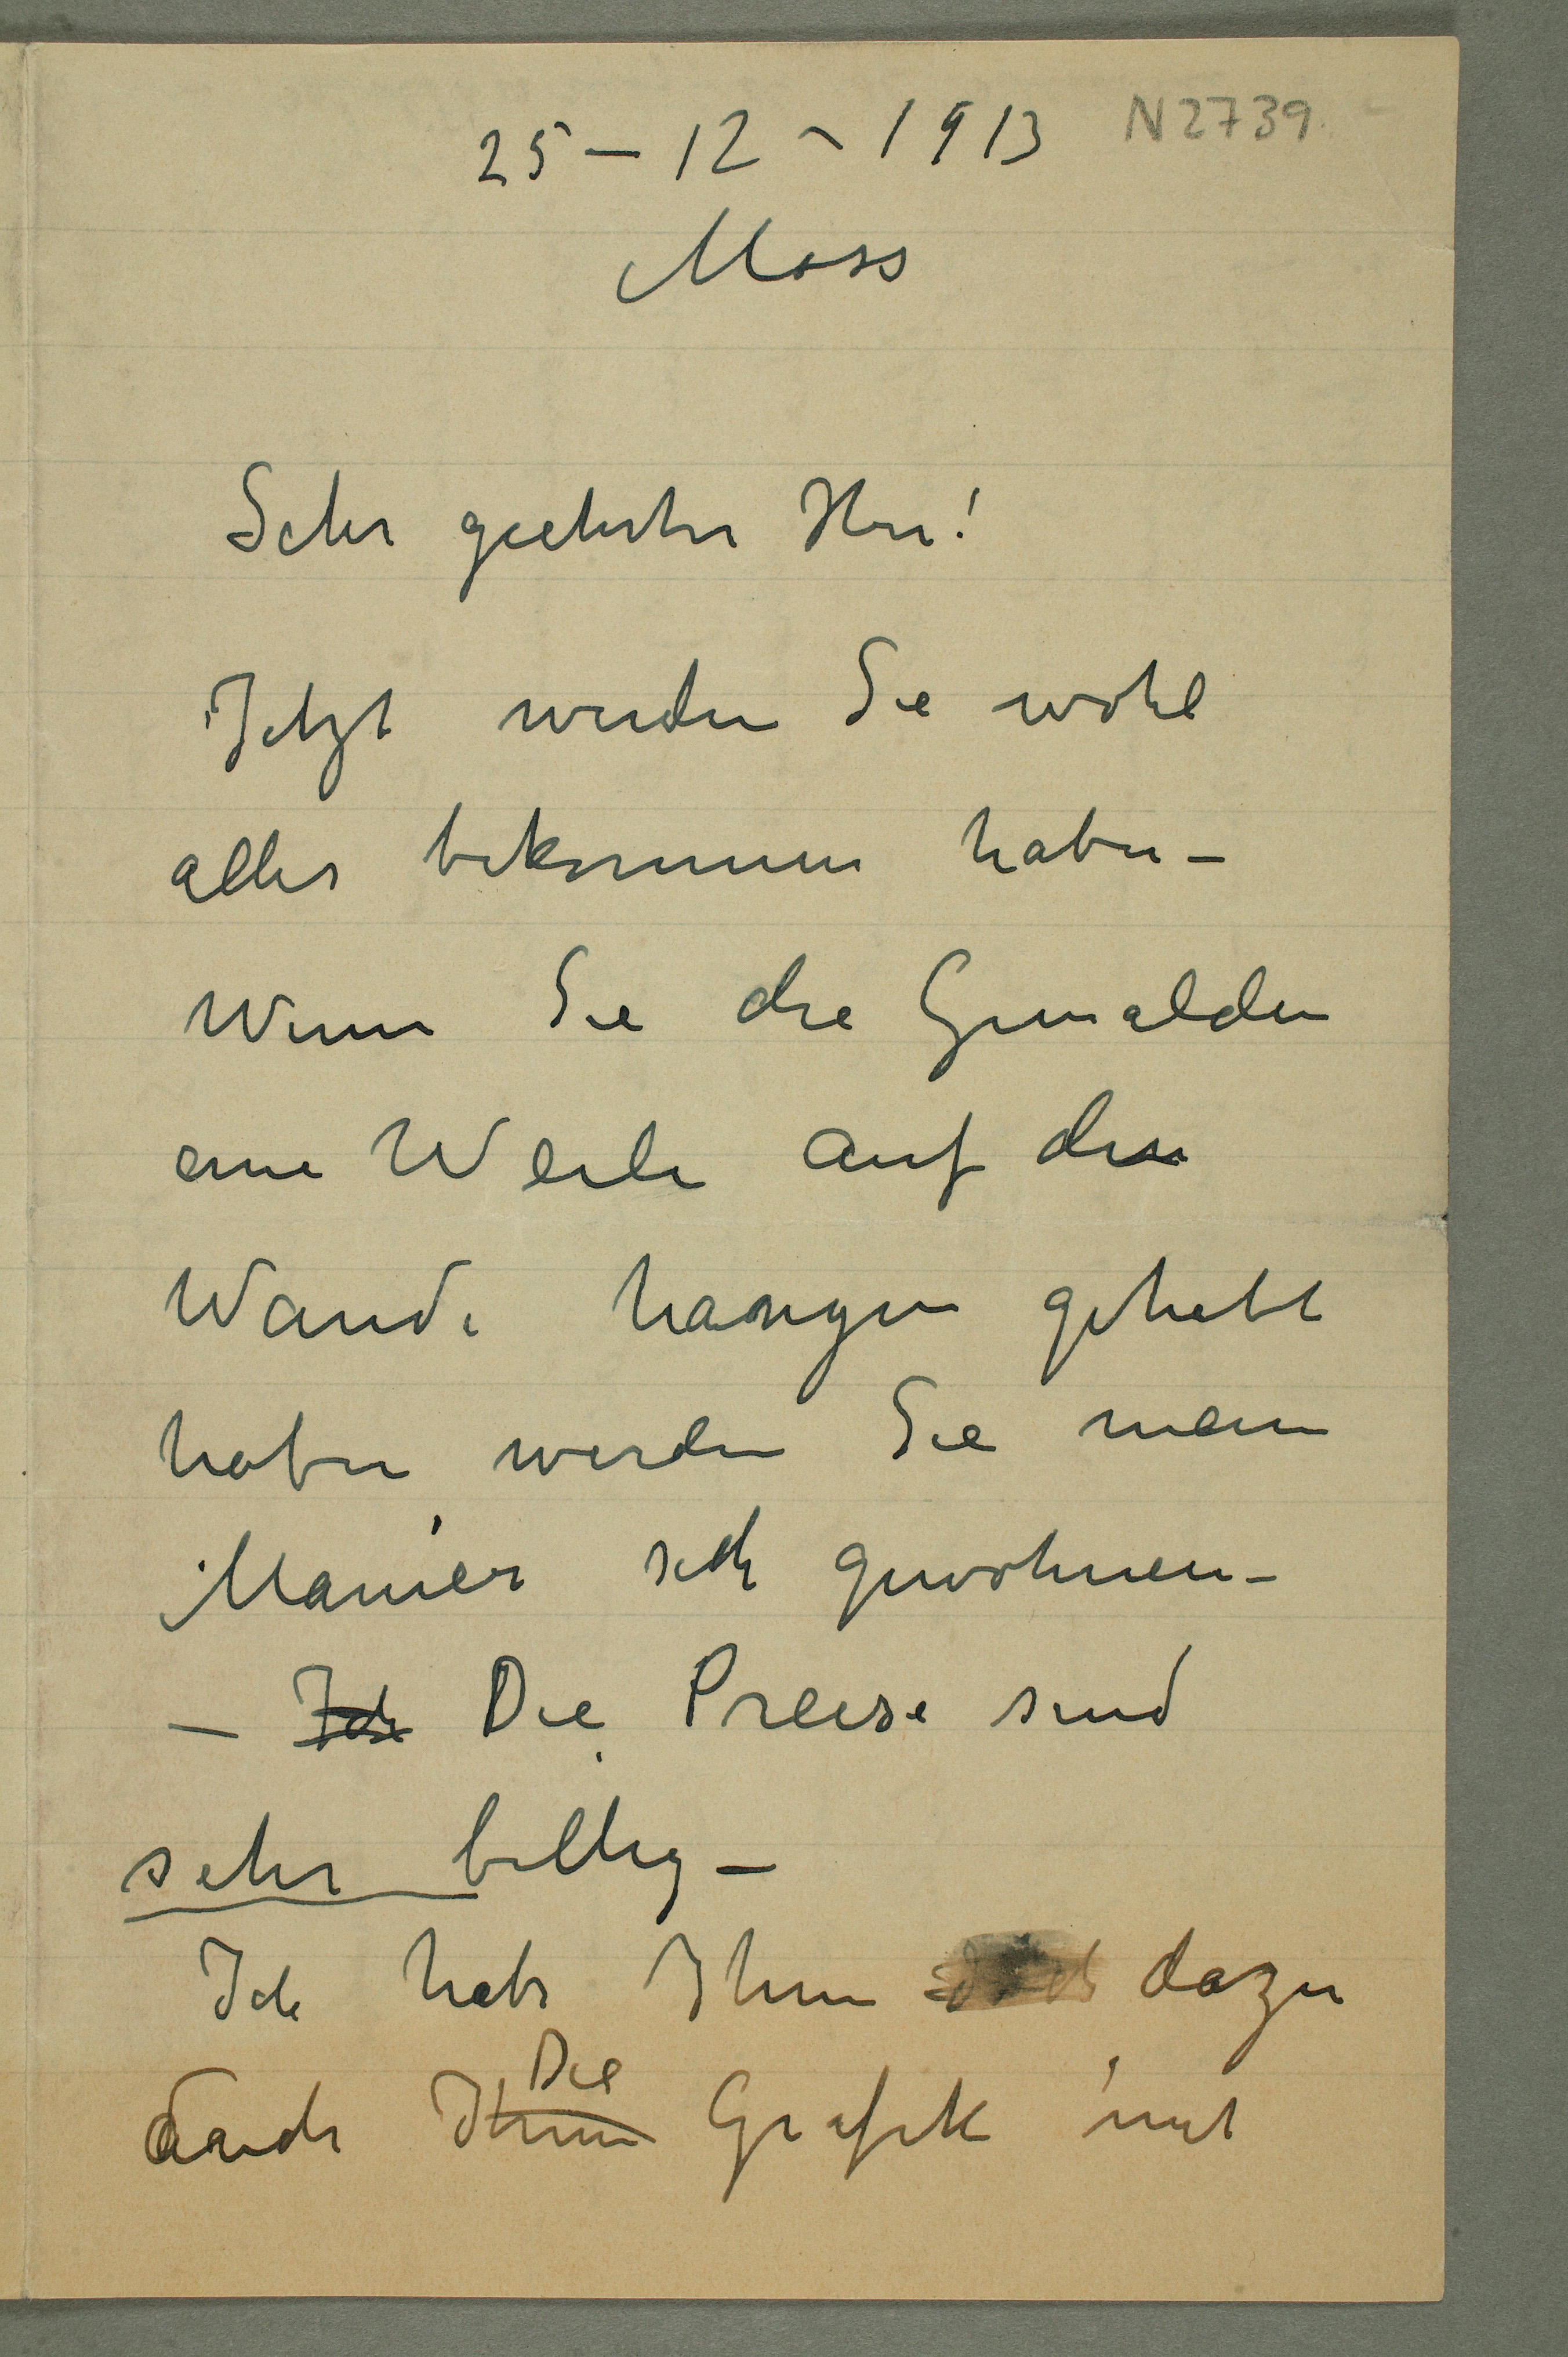 25 – 12 – 1913 N 2739
Moss
Sehr geehrter Herr!
Jetzt werden Sie wohl
alles bekommen haben –
Wenn Sie die Gemalden
eine Weile auf die
Wande hangen gehabt
haben werden Sie mein
Manier sich gewohnen –
– Ich Die Preise sind
sehr billig –
Ich habe Ihnen dazu
Die
auch Ihnen Grafik mit